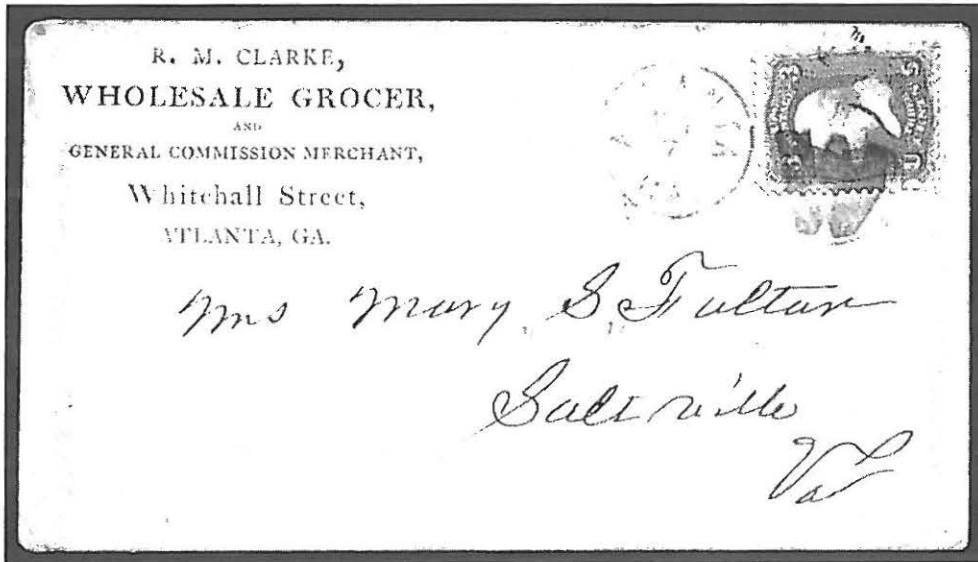 R. M. CLARKE,
WHOLESALE GROCER,
AND
GENERAL COMMISSION MERCHANT,
Whitehall Street,
ATLANTA, GA.
Mrs Mary S Fulton
Saltville
Va